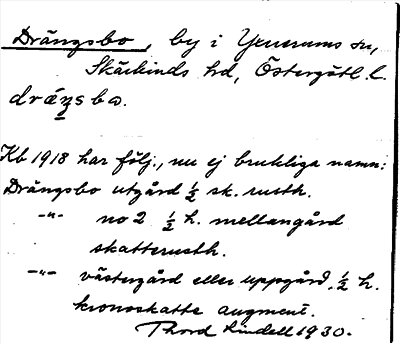 Drängsbo, by i Yxnerums sn,
Skärkinds hd, Östergötl. l.
dräŋsbω.
Kb 1918 har följ., nu ej brukliga namn:
Drängsbo utgård ½ sk. rusth.
-"- no 2 ½ h. mellangård
skatterusth.
-"- västergård eller uppgård, ½ h.
kronoskatte augment.
Thord Lindell 1930.